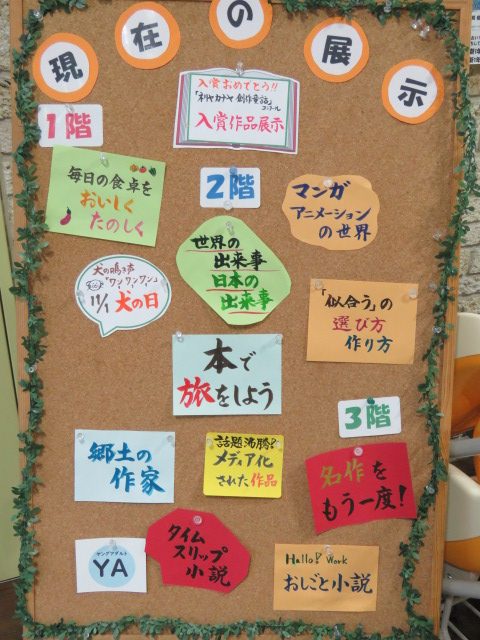 現在の展示
入賞おめでとう!!
「ネリヤカナヤ創作童話」
コンクール
入賞作品展示
1階
毎日の食卓を
おいしく
たのしく
犬の鳴き声
「ワン!ワン!ワン!」
11/1 犬の日
2階
マンガ
アニメーション
の世界
世界の
出来事
日本の
出来事
「似合う」の
選び方
作り方
本で
旅をしよう
3階
郷土の
作家
話題沸騰?
メディア化
された作品
名作を
もう一度!
ヤングアダルト
YA
タイム
スリップ
小説
Hallo! Work
おしごと小説